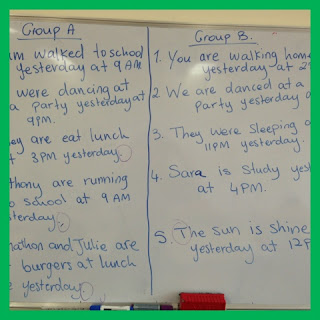 Group A
walked to school
yesterday at 9 AM
were dancing at
a Party yesterday at
9PM.
are eat lunch
3PM yesterday.
are running
school at 9 AM
and Julie are
burgers at lunch
yesterday.
Group B.
1. You are walking
yesterday at
2. We are danced at a
Party yesterday
3. They were Sleeping
11PM yesterday.
4. Sara is study
at 4PM.
5. The sun is shine
yesterday at